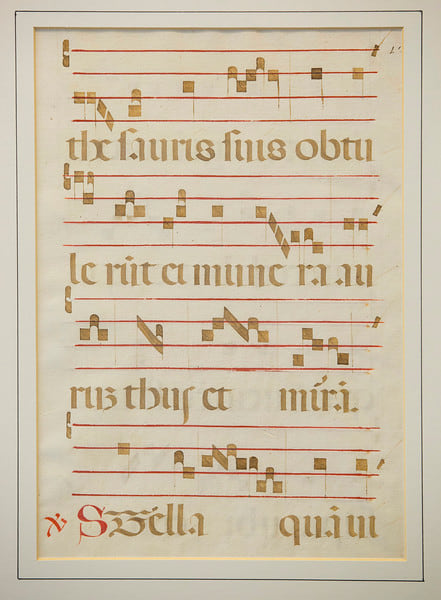 the sauris suis obtu
le rūt ei mune ra au
rūz thus et mirrā.
℣ Stella quā m